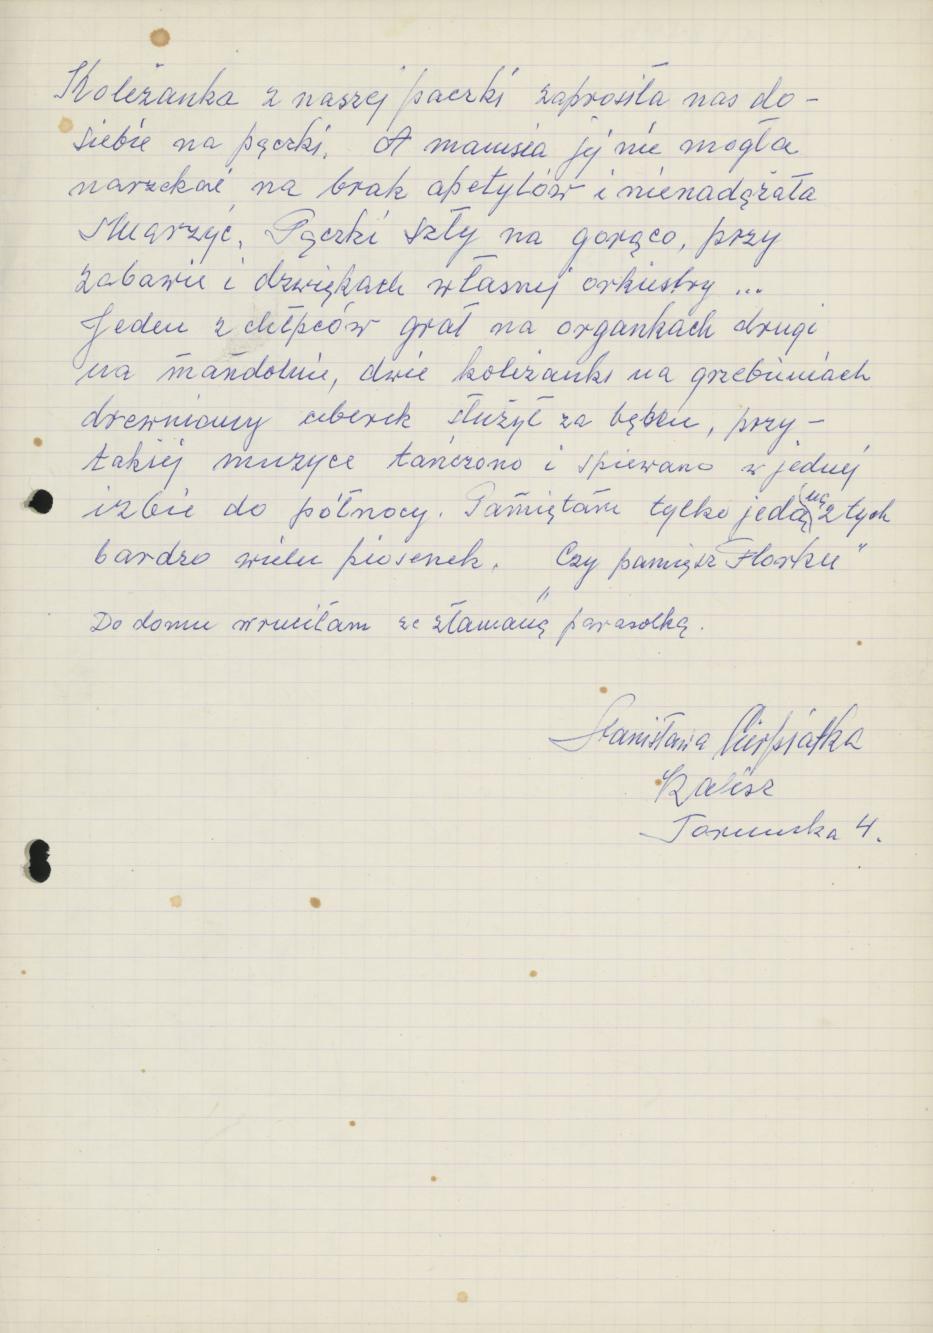 Koleżanka z naszej paczki zaprosiła nas do-
siebie na pączki. A mamusia jej nie mogła
narzekać na brak apetytów i nienadążała
smarzyć. Pączki szły na gorąco, przy
zabawie i dzwiękach własnej orkiestry ...
Jeden z chłpców grał na organkach drugi
na mandolinie, dwie koleżanki na grzebieniach
drewniany ceberek służył za bęben, przy-
takiej muzyce tańczono i spiewano w jednej
izbie do północy. Pamiętam tylko jedną z tych
bardzo wielu piosenek. "Czy pamięsz Florku"
Do domu wruciłam ze złamaną parasolką.
Stanisława Cierpiałka
Kalisz
Toruńska 4.